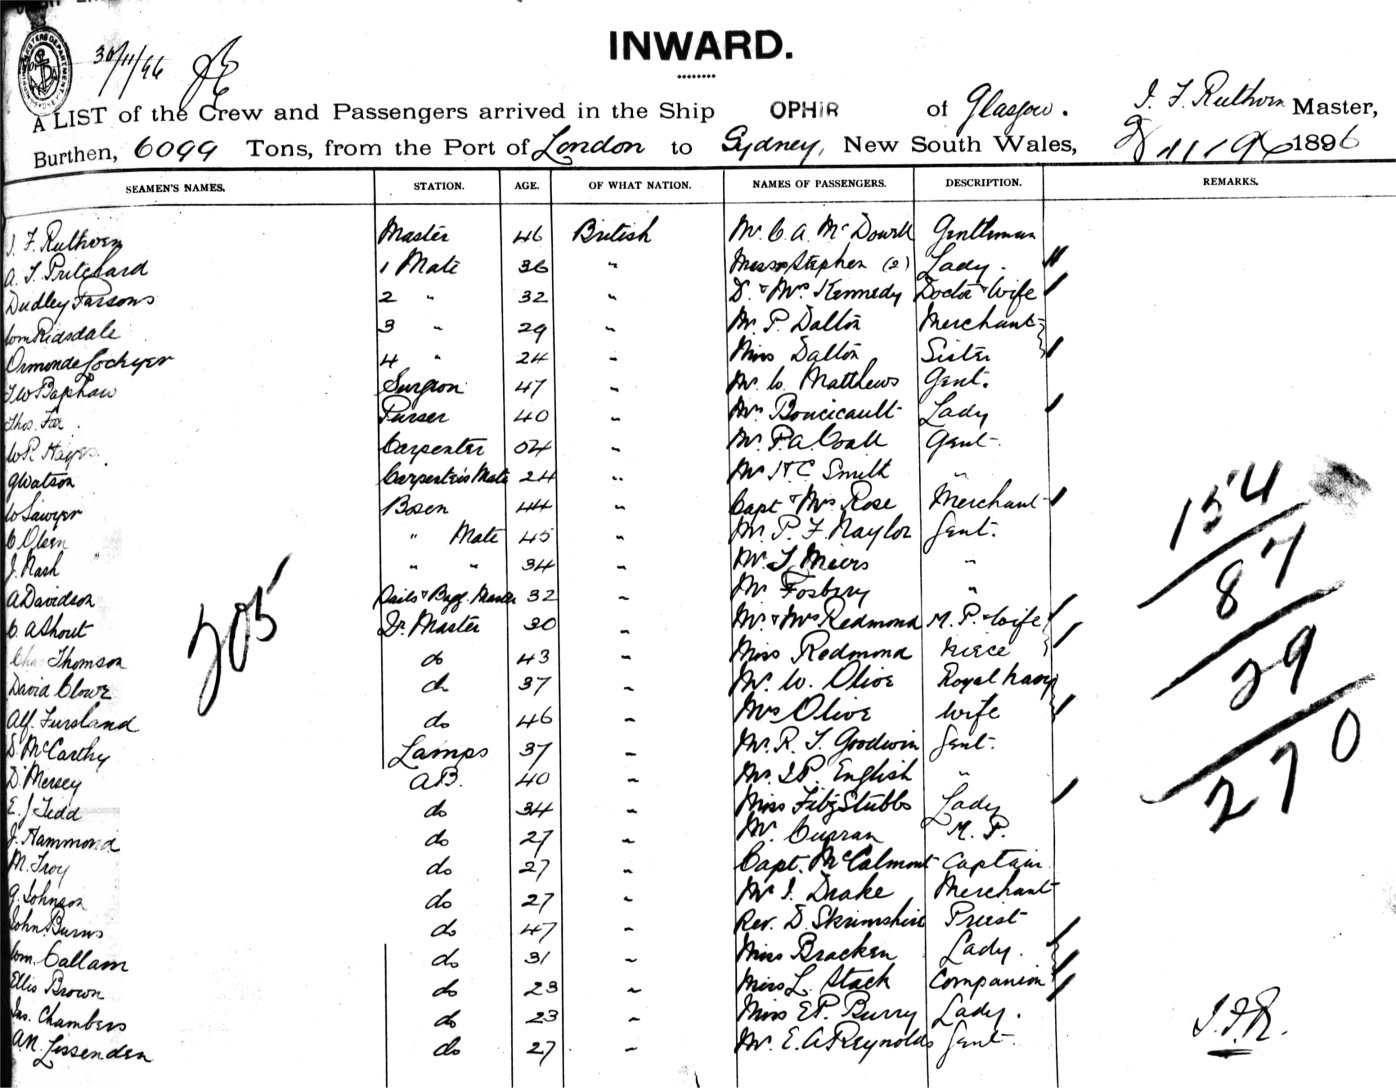 30/11/96
INWARD.
A LIST of the Crew and Passengers arrived in the Ship OPHIR of Glasgow. J. F. Ruthven Master,
Burthen, 6099 Tons, from the Port of London to Sydney, New South Wales, 1896
SEAMEN'S NAMES. STATION. AGE. OF WHAT NATION. NAMES OF PASSENGERS. DESCRIPTION. REMARKS.
J. F. Ruthven Master 46 British Mr. C. A. McDowell Gentleman
A. T. Pritchard 1 Mate 36 " Misses Stephen (2) Lady.
Dudley Parsons 2 " 32 " Dr. & Mrs. Kennedy Doctor & Wife
Wm Ridsdale 3 " 29 " Mr. P. Dalton Merchant
Ormonde Lockyer 4 " 24 " Miss Dalton Sister
Surgeon 47 " Mr. W. Matthews Gent.
Thos. Purser 40 " Mrs Boucicault Lady
W. R. Hayes. Carpenter 54 " Mr. P. A. Gent.
G Watson Carpenter's Mate 24 " Mr H. C. Smith "
W Sawyer Bosen 44 " Capt & Mrs Rose Merchant
C Olsen " Mate 45 " Mr. P. F. Naylor Gent.
J. Nash " " 34 " Mr. T. Meers "
A Davidson & Bagg. Master 32 " Mr Fosbery "
C. A Shout Qr. Master 30 " Mr. & Mrs Redmond M. P. & Wife
Chas Thomson do 43 " Miss Redmond niece
David Clowe do 37 " Mr. W. Olive Royal Navy
Alf. Fursland do 46 " Mrs Olive wife
S. McCarthy Lamps 37 " Mr. R. T. Goodwin Gent.
D. Mersey A.B. 40 " Mr. J. P. English "
E. J Tedd do 34 " Miss FitzStubbs Lady
J. Hammond do 27 " Mr. Curran M. P.
M. Troy do 27 " Capt. McCalmont Captain
G. Johnson do 27 " Mr J. Drake Merchant
John Burns do 47 " Rev. D. Skrimshire Priest
Wm. Callam do 31 " Miss Bracken Lady.
Ellis Brown do 23 " Miss L. Stack Companion
Jas. Chambers do 23 " Miss E. P. Burry Lady.
A. N. Lessenden do 27 " Mr. E. A Reynolds Gent.
205
154
87
29
270
J. F. R.